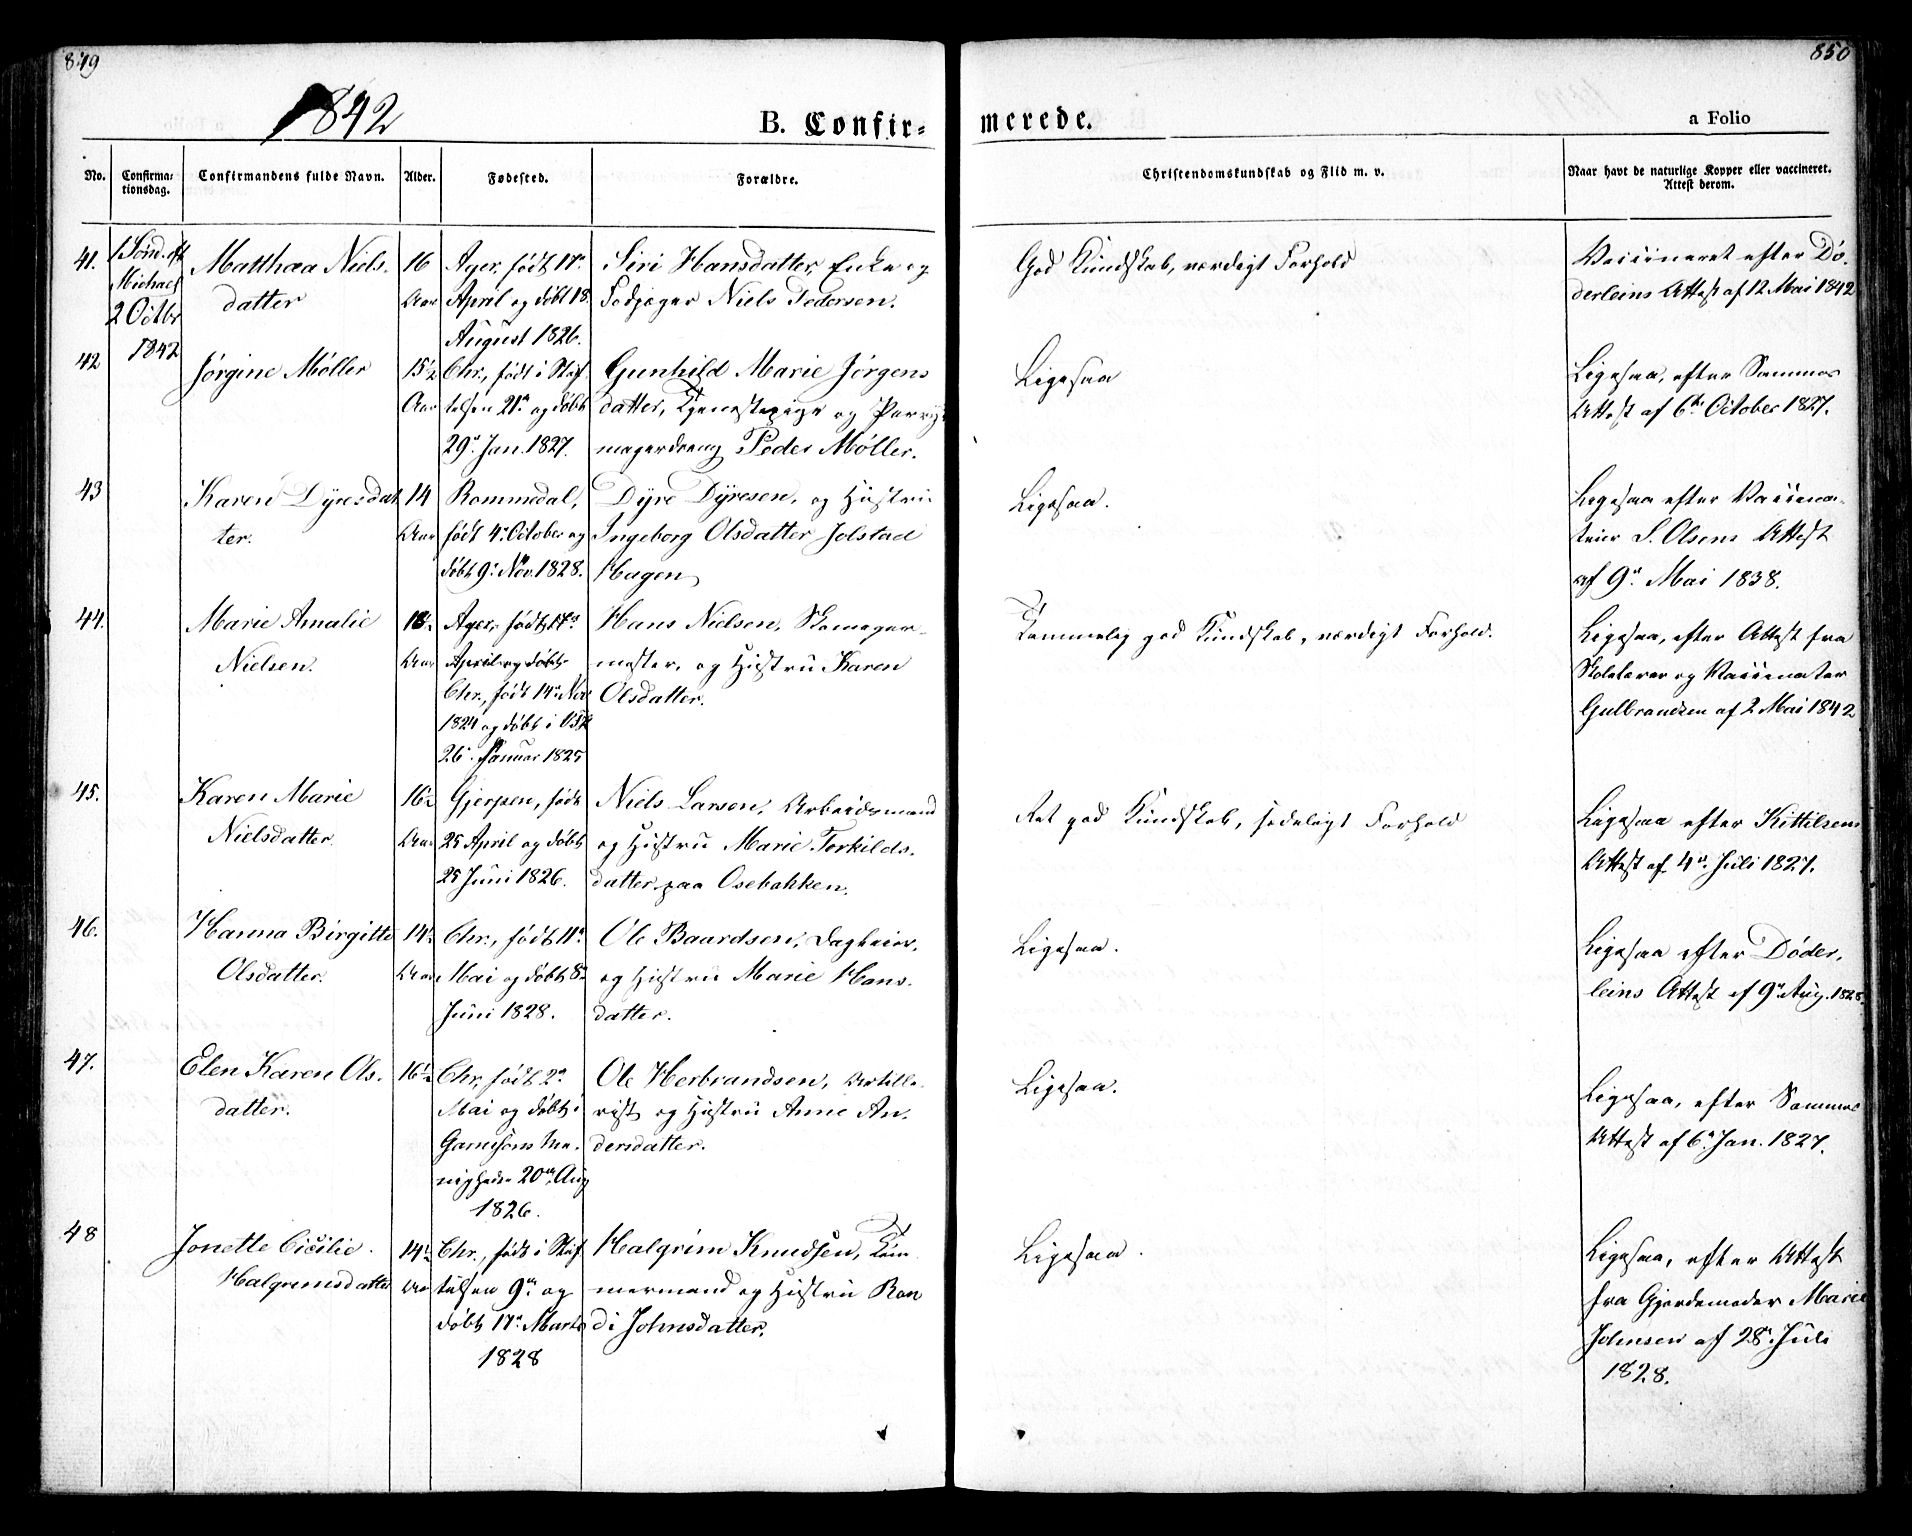 849
850
1842
B. Confir=
merede.
a Folio
No.
Confirma=
tionsdag.
Confirmandens fulde Navn.
Alder.
Fødested.
Forældre.
Christendomskundskab og Flid m. v.
Naar havt de naturlige Kopper eller vaccineret.
Attest derom.
41.
1 Sønd. eft
Michael
2 Octbr
1842
Matthæa Niels-
datter
16
Aar
Ager, født 17de
April og døbt 18
August 1826.
Siri Hansdatter, Enke og
Fodjæger Niels Pedersen.
God Kundskab, værdigt Forhold
Vaccineret efter Dö-
derleins Attest af 12 Mai 1842
42
Jørgine Møller
15½
Aar
Chr., født i Stif
telsen 21de og døbt
29de Jan. 1827.
Gunhild Marie Jørgens
datter, Tjenestepige og Paryk
magerdreng Peder Møller.
Ligesaa
Ligesaa, efter Sammes
Attest af 6te October 1827.
43
Karen Dyresdat
ter.
14
Aar
Rommedal,
født 4de October og
døbt 9de Nov. 1828.
Dyre Dyresen, og Hustru
Ingeborg Olsdatter Jolstad
Hagen
Ligesaa.
Ligesaa efter Vaccina-
teur S. Olsens Attest
af 9de Mai 1838.
44.
Marie Amalie
Nielsen.
Aar
Ager, født 17de
April og døbt
Chr., født 14de Nov
1824 og døbt i
26de Januar 1825
Hans Nielsen, Skomager-
mester, og Hustru Karen
Olsdatter.
Temmelig god Kundskab, værdigt Forhold.
Ligesaa, efter Attest fra
Skolelærer og Vaccinatør
Gulbrandsen af 2 Mai 1842
45.
Karen Marie
Nielsdatter.
16½
Aar
Gjerpen, født
25 April og døbt
25 Juni 1826.
Niels Larsen, Arbeidsmand
og Hustru Marie Torkilds-
datter paa Osebakken.
Ret god Kundskab, sædeligt Forhold
Ligesaa efter Kittilsens
Attest af 4de Juli 1827.
46.
Hanna Birgitte
Olsdatter.
14½
Aar
Chr., født 11de
Mai og døbt 8de
Juni 1828.
Ole Baardsen, Dagleier,
og Hustru Marie Hans-
datter.
Ligesaa.
Ligesaa efter Döder-
leins Attest af 9de Aug. 1828.
47.
Elen Karen Ols-
datter.
16½
Chr, født 2de
Mai og døbt i
Garnisons Me-
nigheden 20de Aug
1826.
Ole Herbrandsen, Artille-
rist og Hustru Anne An-
dersdatter.
Ligesaa.
Ligesaa, efter Sammes
Attest af 6te Jan. 1827.
48
Jonette Cicilie
Halgrimsdatter
14½
Aar
Chr., født i Stif
telsen 9de og
døbt 17de Marts
1828
Halgrim Knudsen, Tøm
mermand og Hustru Ran
di Johnsdatter.
Ligesaa.
Ligesaa, efter Attest
fra Gjordemoder Marie
Johnsen af 28de Juli
1828.